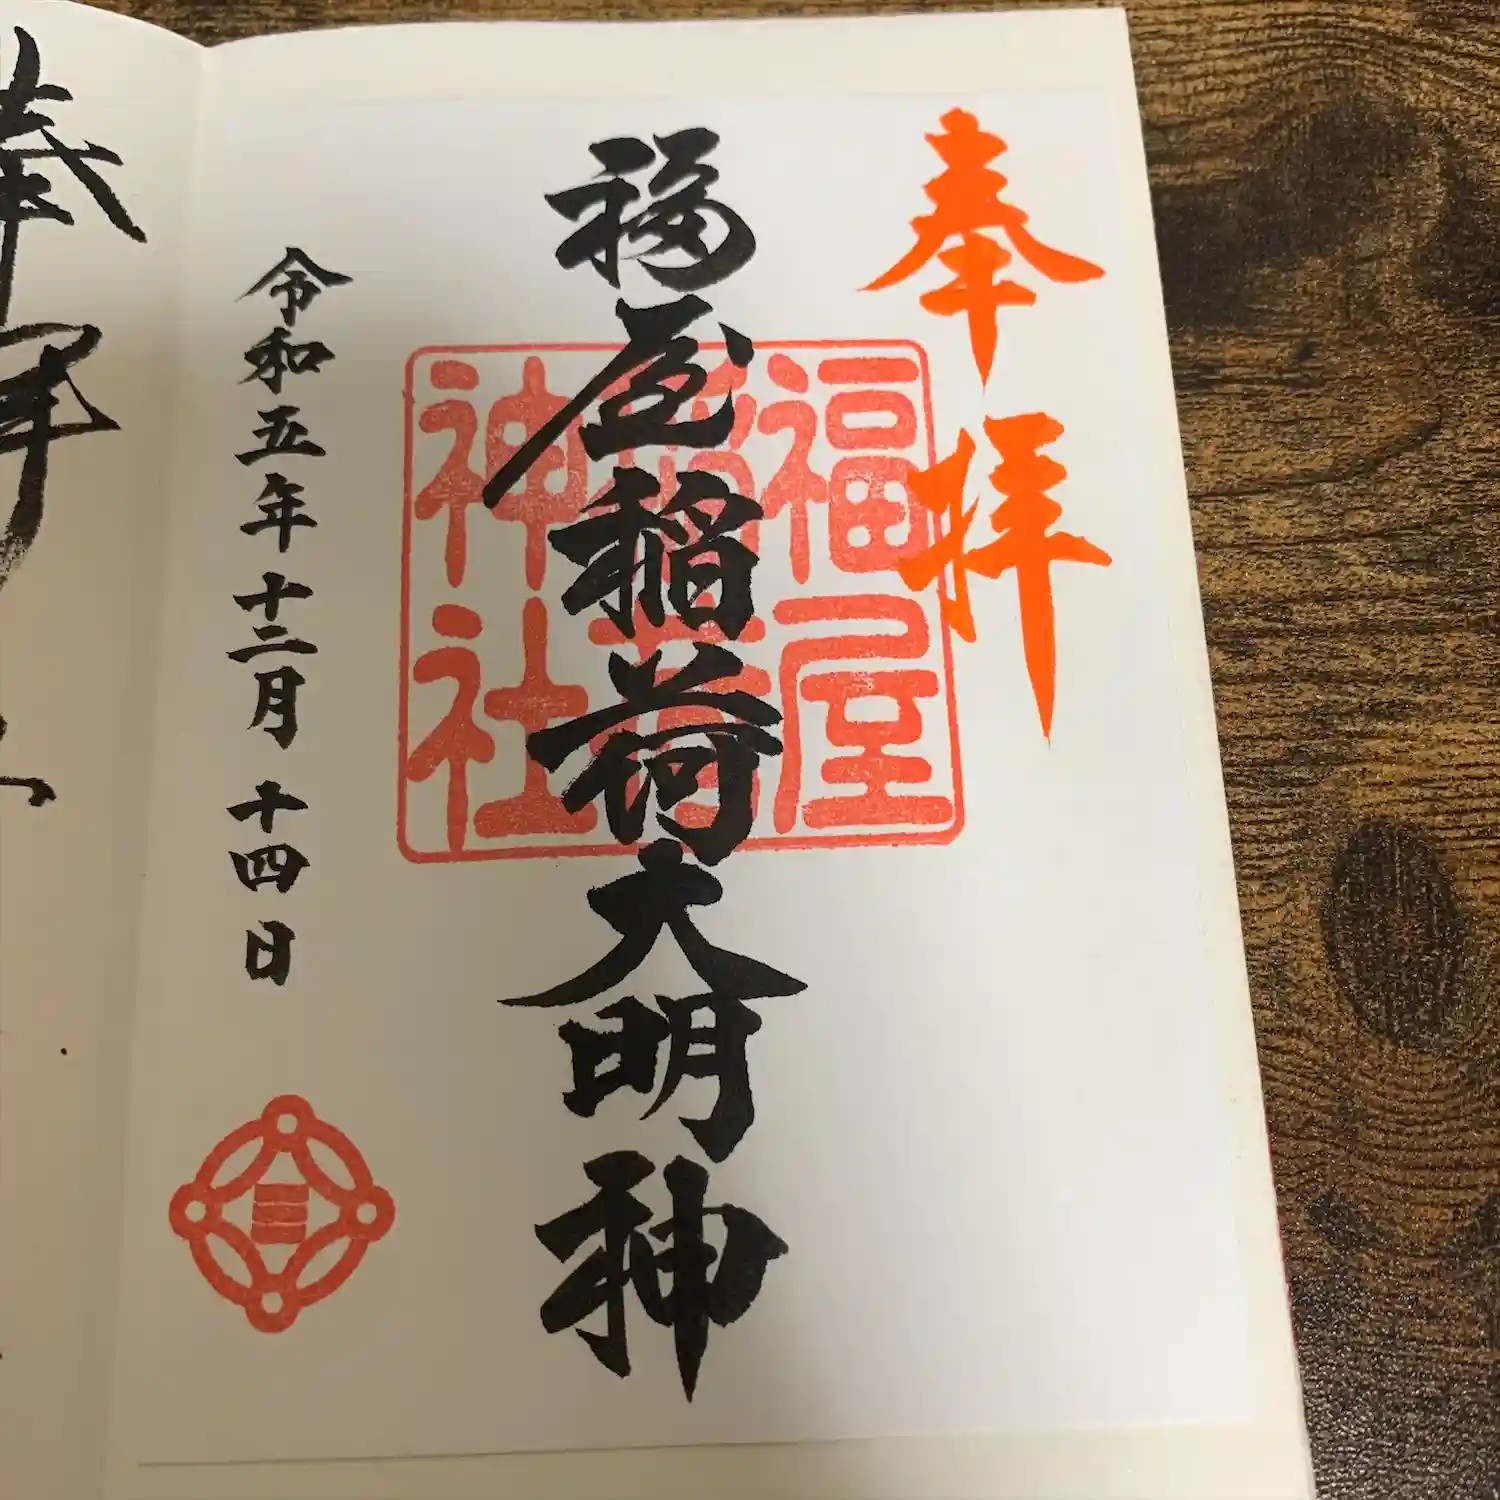 奉拝
福屋稲荷大明神
福屋
稲荷
神社
令和五年十二月十四日
奉拝